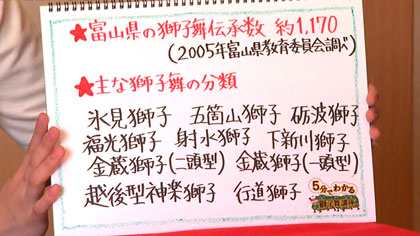 ★富山県の獅子舞伝承数 約1,170
(2005年富山県教育委員会調べ)
★主な獅子舞の分類
氷見獅子 五箇山獅子 砺波獅子
福光獅子 射水獅子 下新川獅子
金蔵獅子(二頭型) 金蔵獅子(一頭型)
越後型神楽獅子 行道獅子
5分でわかる
獅子舞講座